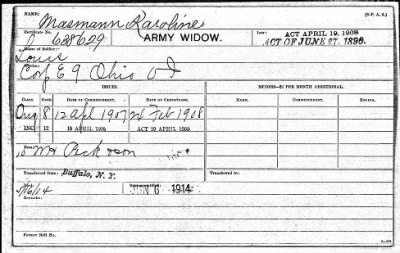 NAME:
Masmann Karoline
Certificate No.
638629
ARMY WIDOW.
Law:
ACT APRIL 19, 1908
ACT OF JUNE 27, 1890.
Name of Soldier:
Louis
Service:
Co E 9 Ohio
ISSUES.
MINORS—$2 PER MONTH ADDITIONAL.
CLASS.
RATE.
DATE OF COMMENCEMENT.
DATE OF CERTIFICATE.
Name.
Commencement.
Ending.
Orig 8 12 Apl 1907 26 Feb 1908
INC. 12 19 APRIL 1908 ACT 19 APRIL 1908
Transferred from:
Buffalo, N. Y.
Transferred to:
6 1914
Remarks:
Former Roll No.